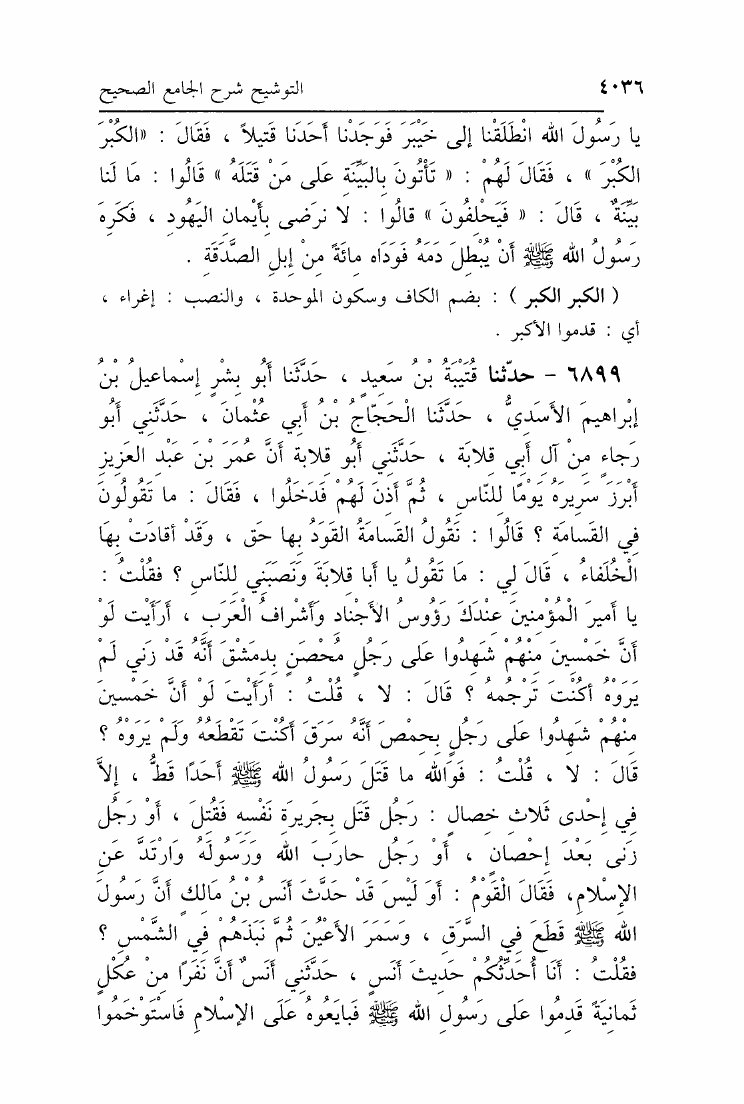 ٤٠٣٦ التوشيح شرح الجامع الصحيح
يا رَسُولَ الله انْطَلَقْنا إلى خَيْبَرَ فَوَجَدْنا أَحَدَنا قَتيلاً ، فَقَالَ : «الكُبْرَ
الكُبْرَ » ، فَقَالَ لَهُمْ : « تَأْتُونَ بِالبَيِّنَةِ عَلى مَنْ قَتَلَهُ » قَالُوا : مَا لَنا
بَيِّنَةٌ ، قَالَ : « فَيَحْلِفُونَ » قالُوا : لا نرَضى بِأَيْمانِ اليَهُودِ ، فَكَرِهَ
رَسُولُ الله ﷺ أَنْ يُبْطِلَ دَمَهُ فَوَدَاه مائَةً مِنْ إِبلِ الصَّدَقَةِ .
( الكبر الكبر ) : بضم الكاف وسكون الموحدة ، والنصب : إغراء ،
أي : قدموا الأكبر .
٦٨٩٩ - حدّثنا قُتَيْبَةُ بْنُ سَعِيدٍ ، حَدَّثَنا أَبُو بِشْرٍ إِسْماعيلُ بْنُ
إِبْراهيمَ الأَسَدِيُّ ، حَدَّثَنا الْحَجّاجُ بْنُ أَبي عُثْمانَ ، حَدَّثَني أَبُو
رَجاءٍ مِنْ آلِ أَبي قِلابَة ، حَدَّثَني أَبُو قِلابة أَنَّ عُمَرَ بْنَ عَبْدِ العَزيزِ
أَبْرَزَ سَرِيرَهُ يَوْمًا لِلنّاسِ ، ثُمَّ أَذِنَ لَهُمْ فَدَخَلُوا ، فَقَالَ : ما تَقُولُونَ
فِي القَسامَةِ ؟ قَالُوا : نَقُولُ القَسامَةُ القَوَدُ بِها حَق ، وَقَدْ أقادَتْ بِهَا
الْخُلَفاءُ ، قَالَ لِي : مَا تَقُولُ يا أَبا قِلابَةَ وَنَصَبَنِي لِلنّاسِ ؟ فقُلْتُ :
يا أَميرَ الْمُؤْمِنينَ عِنْدَكَ رَؤُوسُ الأَجْنادِ وَأَشْرافُ العَرَبِ ، أَرَأَيْت لَوْ
أَنَّ خَمْسينَ مِنْهُمْ شَهِدُوا عَلى رَجُلٍ مُحْصَنٍ بِدِمَشْقَ أَنَّهُ قَدْ زَني لَمْ
يَرَوْهُ أكُنْتَ تَرْجُمهُ ؟ قَالَ : لا ، قُلْتُ : أرأَيْتَ لَوْ أَنَّ خَمْسينَ
مِنْهُمْ شَهِدُوا عَلى رَجُلٍ بِحِمْصَ أَنَّهُ سَرَقَ أَكُنْتَ تَقْطَعُهُ وَلَمْ يَرَوْهُ ؟
قَالَ : لا ، قُلْتُ : فَوَالله ما قَتَلَ رَسُولُ الله ﷺ أَحَدًا قَطُّ ، إِلاَّ
فِي إِحْدى ثَلاثِ خِصالٍ : رَجُل قَتَل بِجَريرَةِ نَفْسِهِ فَقُتِلَ ، أَوْ رَجُل
زَنى بَعْدَ إِحْصانٍ ، أَوْ رَجُل حارَبَ الله وَرَسُولَهُ وَارْتَدَّ عَنِ
الإِسْلامِ، فَقَالَ الْقَوْمُ : أَوَ لَيْسَ قَدْ حَدَّثَ أَنَسُ بْنُ مَالِكٍ أَنَّ رَسُولَ
الله ﷺ قَطَعَ فِي السَّرَقِ ، وَسَمَرَ الأَعْيُنَ ثُمَّ نَبَذَهُمْ فِي الشَّمْسِ ؟
فقُلْتُ : أَنَا أُحَدِّثُكُمْ حَديثَ أَنَسٍ ، حَدَّثَني أَنَسٌ أَنَّ نَفَرًا مِنْ عُكْلٍ
ثَمانِيَةً قَدِمُوا عَلى رَسُولِ الله ﷺ فَبايَعُوهُ عَلَى الإِسْلامِ فَاسْتَوْخَمُوا